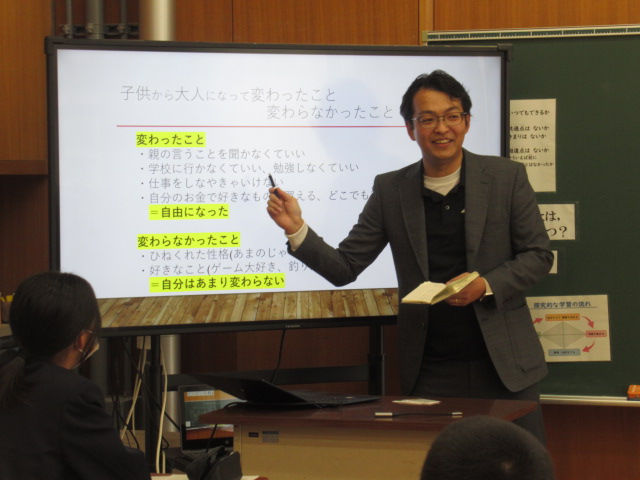 子供から大人になって変わったこと
変わらなかったこと
変わったこと
・親の言うことを聞かなくていい
・学校に行かなくていい、勉強しなくていい
・仕事をしなやきゃいけない
・自分のお金で好きなもの 買える、どこでも
＝自由になった
変わらなかったこと
・ひねくれた性格(あまのじゃ
・好きなこと(ゲーム大好き、釣り
＝自分はあまり変わらない
いつでもできるが
共通点は ないか
きまりは ないか
とは、
つ？
探究的な学習の流れ